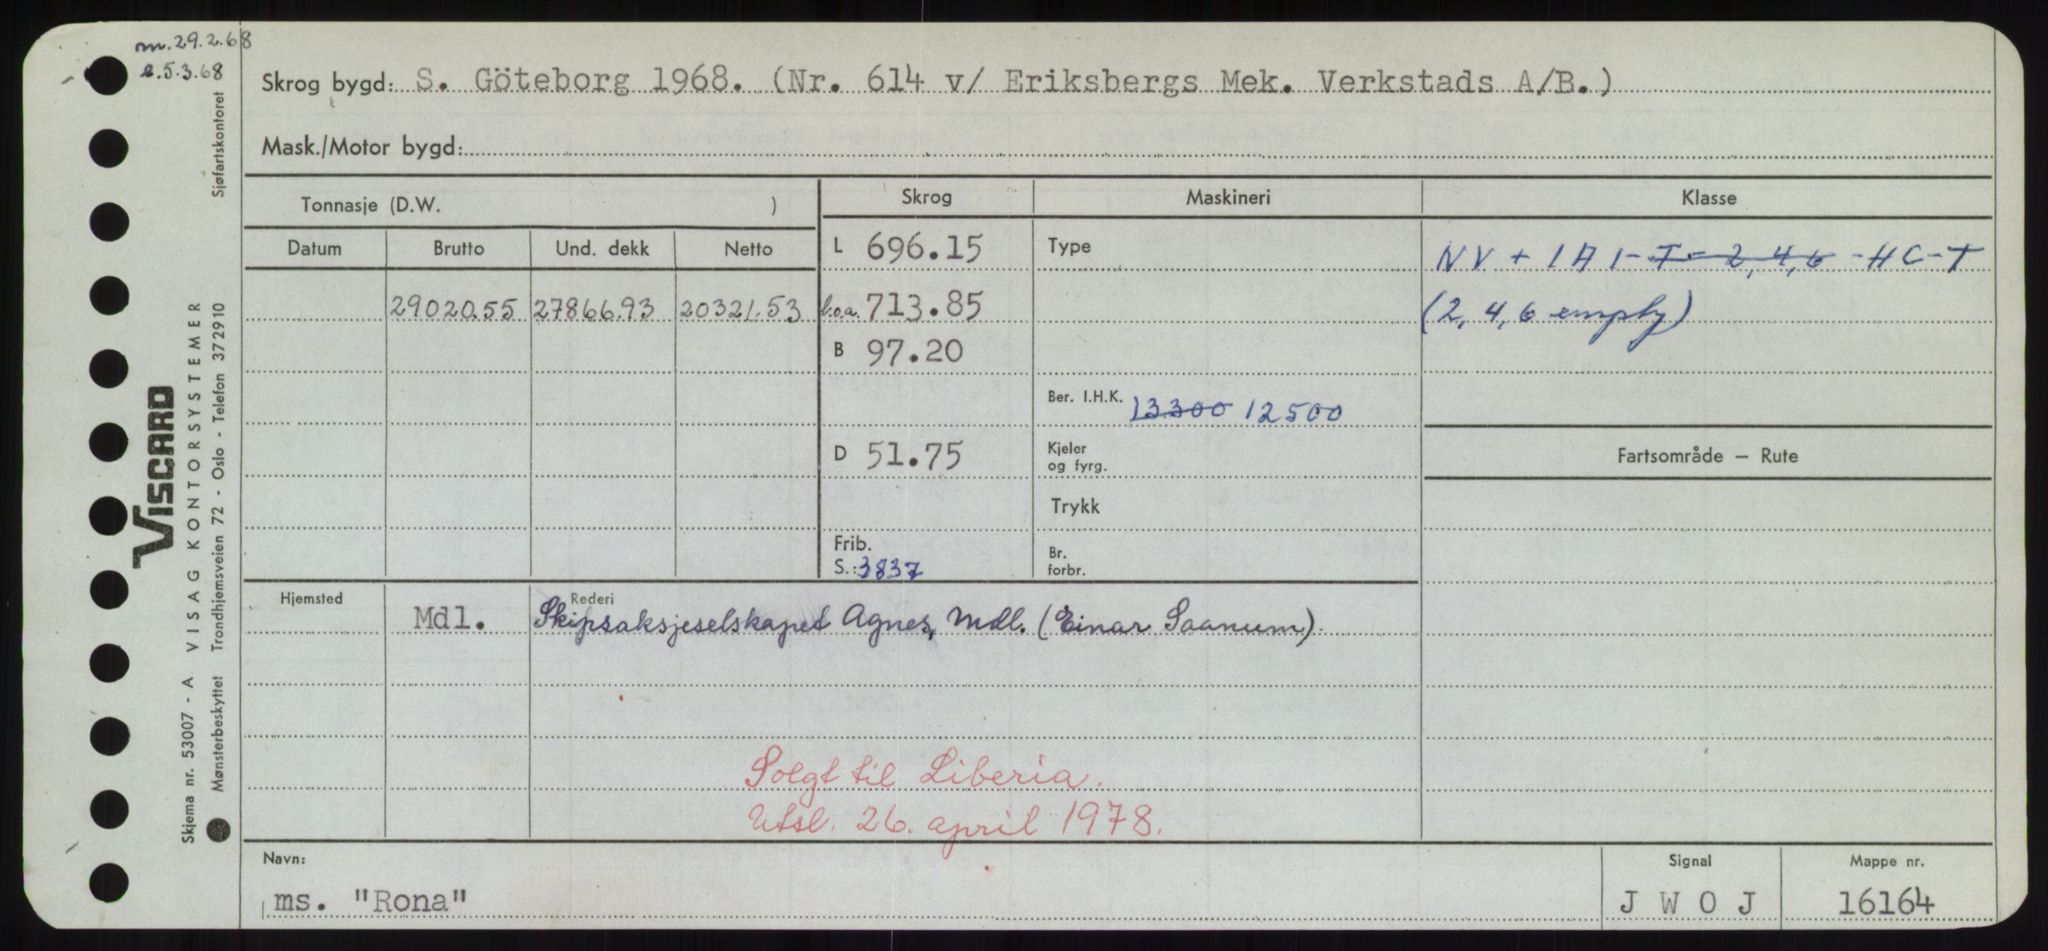 m. 29.2.68
e. 5.3.68
Skrog bygd: S. Göteborg 1968. (Nr. 614 v/ Eriksbergs Mek. Verkstads A/B.)
Mask./Motor bygd:
Tonnasje (D.W. )
Skrog
Maskineri
Klasse
Datum Brutto Und. dekk Netto
L 696.15
Type
NV + 1A1-T-2,4,6-HC-T
29020.55 27866.93 20321.53
l.o.a. 713.85
(2, 4, 6 empty)
B 97.20
Ber. I.H.K. 13300 12500
D 51.75
Kjeler
og fyrg.
Fartsområde — Rute
Trykk
Frib.
S.: 3837
Br.
forbr.
Hjemsted
Rederi
Mdl. Skipsaksjeselskapet Agnes, Mdl. (Einar Saanum).
Solgt til Liberia.
Utsl. 26. april 1978.
Navn:
ms. "Rona"
Signal
J W O J
Mappe nr.
16164
VISCARD
Skjema nr. 53007 - A VISAG KONTORSYSTEMER
Mønsterbeskyttet Trondhjemsveien 72 - Oslo - Telefon 372910 Sjøfartskontoret